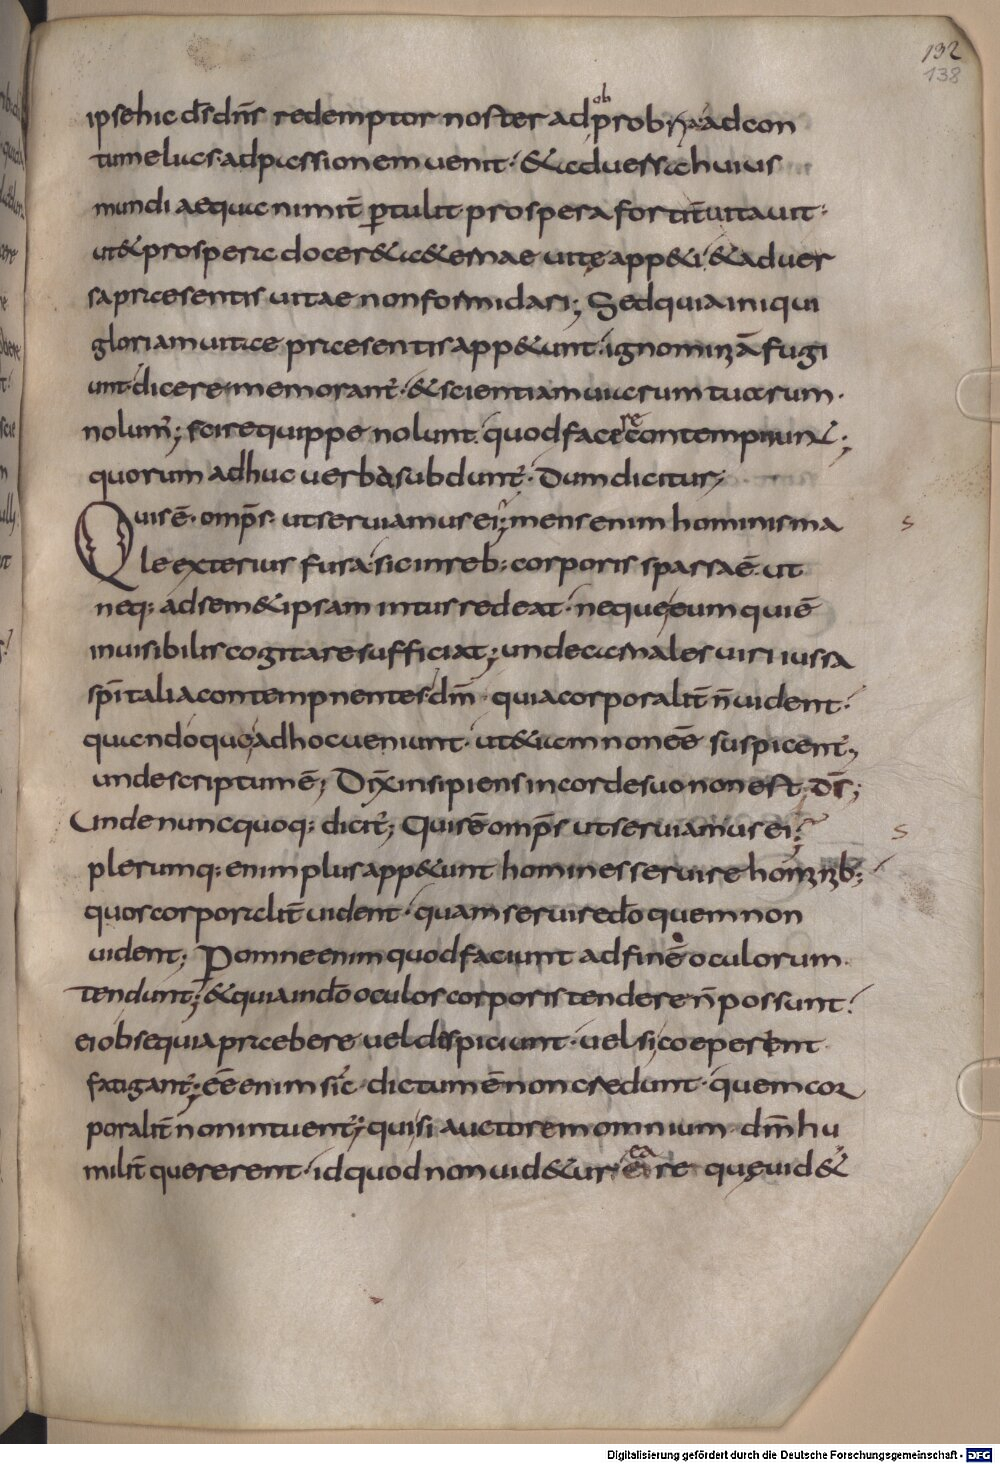 132
138
ipse hic d̄s dn̄s redemptor noster ad ꝓrob ad con
ob
tumelias · ad passionem uenit · & aduersa huius
mundi aequanimit̄ ꝑtulit · prospera fortit̄ uitauit ·
ut & prospera docer& a&ernae uitę app&i · & aduer
sa praesentis uitae non formidari; Sed quia iniqui
gloriam uitae praesentis app&unt · ignominiā fugi
unt · dicere memorant̄ · & scientiam uiarum tuarum ·
nolum̄; scire quippe nolunt · quod facere contempnunt;
re
quorum adhuc uerba subdunt̄ · Dum dicitur;
Quis ē · omp̄s · ut seruiamus ei; mens enim hominis ma
s
le exterius fusa · sic in reb: corporis sparsa ē · ut
neq: ad sem&ipsam intus redeat · neque eum qui ē
inuisibilis cogitare sufficiat; unde carnales uiri iussa
sp̄italia contempnentes dm̄ · quia corporalit̄ n̄ uident ·
quandoque ad hoc ueniunt · ut &iam non eē suspicent̄;
unde scriptum ē; Dix̄ insipiens in corde suo non est · d̄s;
Unde nunc quoq: dicit̄; Quis ē omp̄s ut seruiamus ei?
s
plerumq: enim plus app&unt homines seruire hominib:
quos corporalit̄ uident · quam seruire dō quem non
uident; P omne enim quod faciunt ad finē oculorum
tendunt; & quia in dō oculos corporis tendere n̄ possunt ·
ei obsequia praebere uel despiciunt · uel si coeperint
fatigant̄; eē enim sic dictum ē non credunt · quem cor
poralit̄ non intuent̄; qui si auctorem omnium dm̄ hu
milit̄ quererent · id quod non uid&ur · re quę uid&
ea
Digitalisierung gefördert durch die Deutsche Forschungsgemeinschaft - DFG